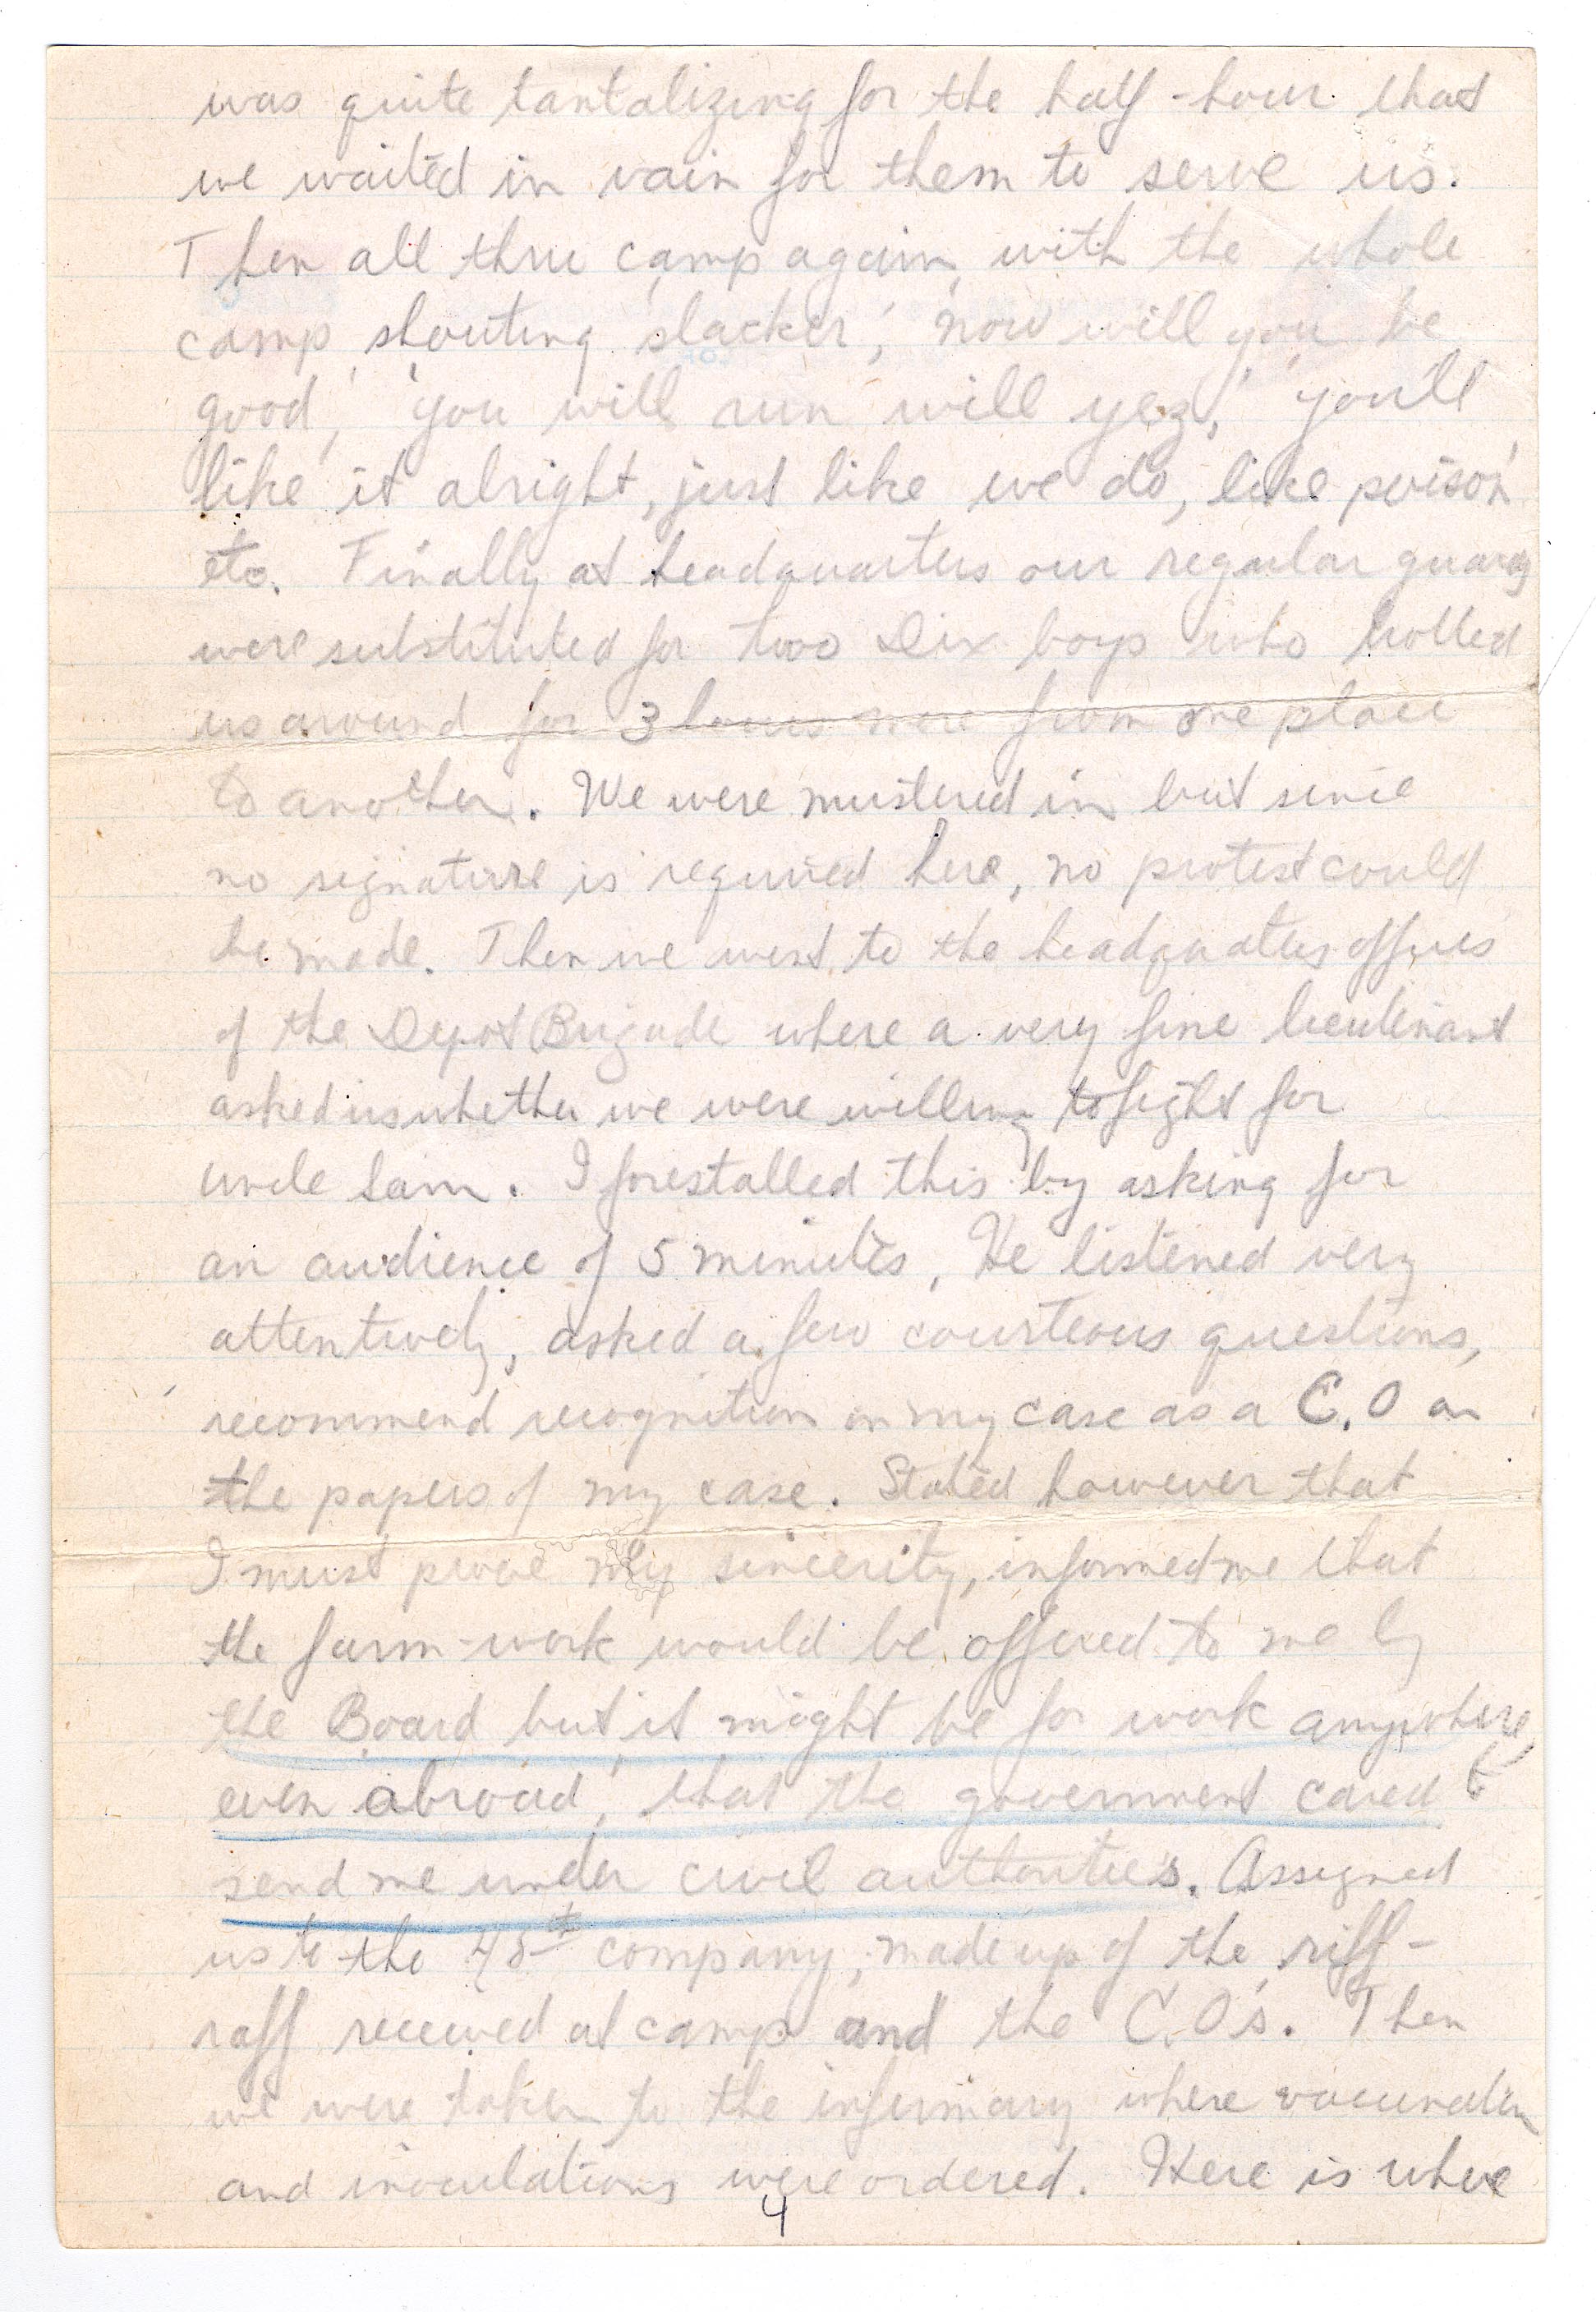 was quite tantalizing for the half-hour that
we waited in vain for them to serve us.
Then all thru camp again, with the whole
camp shouting 'slacker', 'now will you be
good', 'you will run will yez,' 'you'll
like it alright, just like we do, like poison'
etc. Finally at headquarters our regular guards
were substituted for two Dix boys who trotted
us around for 3 hours more from one place
to another. We were mustered in but since
no signature is required here, no protest could
be made. Then we went to the headquaters offices
of the Depot Brigade where a very fine lieutenant
asked us whether we were willing to fight for
uncle Sam. I forestalled this by asking for
an audience of 5 minutes. He listened very
attentively, asked a few courteous questions,
recommend recognition on my case as a C.O on
the papers of my case. Stated however that
I must prove my sincerity, informed me that
the farm-work would be offered to me by
the Board but it might be for work anywhere,
even abroad, that the government cared to
send me under civil authorities. Assigned
us to the 48th company, made up of the riff-
raff received at camp and the C.O's. Then
we were taken to the infirmary where vaccination
and inoculations were ordered. Here is where
4